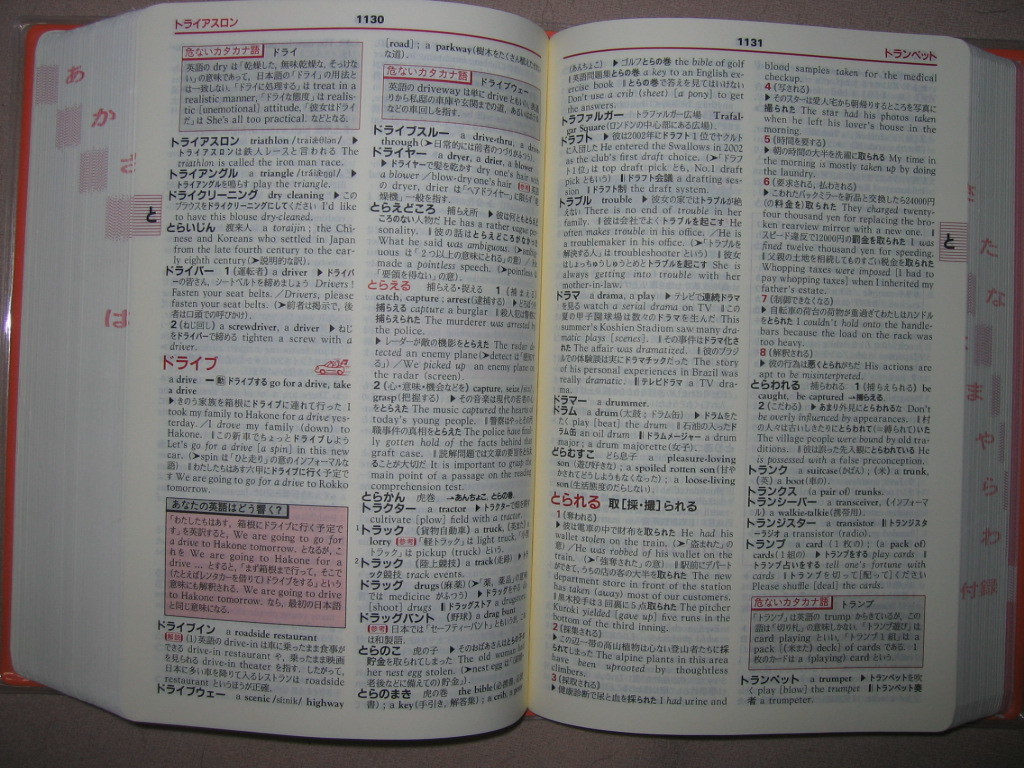 トライアスロン
1130
危ないカタカナ語 ドライ
英語の dry は「乾燥した, 無味乾燥な, そっけな
い」の意味であって, 日本語の「ドライ」の用法とは
一致しない.「ドライに処理する」は treat in a
realistic manner,「ドライな態度」は realis-
tic [unemotional] attitude,「彼女はドライ
だ」は She's all too practical. などとなる.
トライアスロン triathlon
トライアスロンは鉄人レースと言われる The
triathlon is called the iron man race.
トライアングル a triangle
トライアングルを鳴らす play the triangle.
ドライクリーニング dry cleaning ▶この
ブラウスをドライクリーニングにしてください I'd like
to have this blouse dry-cleaned.
とらいじん 渡来人 a toraijin; the Chi-
nese and Koreans who settled in Japan
from the late fourth century to the ear-
ly eighth century (➤説明的な訳).
ドライバー 1 (運転者) a driver ▶ドライバ
ーの皆さん, シートベルトを締めましょう Drivers!
Fasten your seat belts. / Drivers, please
fasten your seat belts. (➤前者は掲示で, 後
者は口頭での呼びかけ).
2 (ねじ回し) a screwdriver, a driver ▶ねじ
をドライバーで締める tighten a screw with a
driver.
ドライブ
a drive. 一動 ドライブする go for a drive, take
a drive
▶きのう家族を箱根にドライブに連れて行った I
took my family to Hakone for a drive yes-
terday. / I drove my family (down) to
Hakone. ‖この新車でちょっとドライブしよう
Let's go for a drive [a spin] in this new
car. (➤spin は「ひと走り」の意のインフォーマルな
語) ‖わたしたちはあす六甲にドライブに行く予定で
す We are going to go for a drive to Rokko
tomorrow.
あなたの英語はどう響く?
「わたしたちはあす, 箱根にドライブに行く予定で
す」を英訳すると, We are going to go for
a drive to Hakone tomorrow. となるが, こ
れを We are going to Hakone for a
drive ... とすると,「まず箱根まで行って, そこで
(たとえばレンタカーを借りて)ドライブをする」という
意味にも解釈される. We are going to drive
to Hakone tomorrow. なら, 最初の日本語
と同じ意味になる.
ドライブイン a roadside restaurant
解説 (1)英語の drive-in は車に乗ったまま食事が
できる drive-in restaurant や, 乗ったまま映画
を見られる drive-in theater を指す. したがって,
日本に多い車を降りて入るレストランは roadside
restaurant というほうが正確.
ドライブウェー a scenic /síːnɪk/ highway
[road]; a parkway(樹木をたくさん植えた
な道).
危ないカタカナ語 ドライブウェー
英語の driveway は単に drive ともいい
りから私邸の車庫や玄関までの道, あるいは
などの車回しを指す.
ドライブスルー a drive-thru, a drive-
through (➤日常的には前者のつづりがふつう).
ドライヤー a dryer, a drier, a blower
▶ドライヤーで髪を乾かす dry one's hair with
a blower / blow-dry one's hair. 参考 英語
の dryer, drier は「ヘアドライヤー」に限らず「乾
燥機」一般を指す.
とらえどころ 捕らえ所 ▶彼は何ともとらえ
ころのない人物だ He has a rather vague per-
sonality. ‖彼の話はとらえどころがなかった
What he said was ambiguous. (➤ambig-
uous は「2つ以上の意味にとれる」の意) / He
made a pointless speech. (➤pointless は
「要領を得ない」の意).
とらえる 捕らえる・捉える 1 (捕まえる)
catch, capture; arrest(逮捕する) ▶どろぼうを
捕らえる capture a burglar ‖殺人犯は警察に
捕らえられた The murderer was arrested by
the police.
▶レーダーが敵の機影をとらえた The radar de-
tected an enemy plane. (➤detect は「感知す
る」) / We picked up an enemy plane on
the radar (screen).
2 (心・意味・機会などを) capture, seize /siːz/;
grasp(把握する) ▶その音楽は現代の若者の心
をとらえた The music captured the hearts of
today's young people. ‖警察はやっとその汚
職事件の真相をとらえた The police have final-
ly gotten hold of the facts behind that
graft case. ‖読解問題では文章の要旨をとらえ
ることが大切だ It is important to grasp the
main point of a passage on the reading
comprehension test.
とらかん 虎巻 →あんちょこ, とらの巻.
トラクター a tractor ▶トラクターで畑を耕す
cultivate [plow] field with a tractor.
トラック (貨物自動車) a truck, (英また) a
lorry 参考「軽トラック」は light truck,「小型
トラック」は pickup (truck) という.
トラック (陸上競技) a track(走路) ▶トラ
ック競技 track events.
ドラッグ drugs(麻薬) (➤「薬, 薬品」の意
では medicine がふつう) ▶ドラッグをやる do
[shoot] drugs ‖ドラッグストア a drugstore.
ドラッグバント (野球) a drag bunt
参考 日本では「セーフティーバント」ともいうが, これ
は和製語.
とらのこ 虎の子 ▶そのおばあさんはとらの子の
貯金を取られてしまった The old woman had
her nest egg stolen. (➤nest egg は「(結婚・
老後などに備えての)貯金」).
とらのまき 虎の巻 the bible(必携書, 必読
書); a key(手引き, 解答集); a crib, a pony
1131
トランペット
(あんちょこ) ▶ゴルフとらの巻 the bible of golf
‖英語問題集とらの巻 a key to an English ex-
ercise book ‖とらの巻で答えを見てはいけない
Don't use a crib (sheet) [a pony] to get
the answers.
トラファルガー トラファルガー広場 Trafal-
gar Square(ロンドンの中心部にある広場).
ドラフト ▶彼は2002年にドラフト1位でヤクルト
に入団した He entered the Swallows in 2002
as the club's first draft choice. (➤「ドラフ
ト1位」は top draft pick とも, No.1 draft
pick ともいう) ‖ドラフト会議 a drafting ses-
sion ‖ドラフト制 the draft system.
トラブル trouble ▶彼女の家ではトラブルが絶
えない There is no end of trouble in her
family. ‖彼は会社でよくトラブルを起こす He
often makes trouble in his office. / He is
a troublemaker in his office. (➤「トラブルを
解決する人」は troubleshooter という) ‖彼女
はしょっちゅうしゅうとめとトラブルを起こす She is
always getting into trouble with her
mother-in-law.
ドラマ a drama, a play ▶テレビで連続ドラマ
を見る watch a serial drama on TV ‖この
夏の甲子園球場は数々のドラマを生んだ This
summer's Koshien Stadium saw many dra-
matic plays [scenes]. ‖その事件はドラマ化さ
れた The affair was dramatized. ‖彼のブラジ
ルでの体験談は実にドラマチックだった The story
of his personal experiences in Brazil was
really dramatic. ‖テレビドラマ a TV dra-
ma.
ドラマー a drummer.
ドラム a drum(太鼓; ドラム缶) ▶ドラムをた
たく play [beat] the drum ‖石油の入ったド
ラム缶 an oil drum ‖ドラムメージャー a drum
major; a drum majorette(女子).
どらむすこ どら息子 a pleasure-loving
son(遊び好きな); a spoiled rotten son(甘や
かされてどうしようもなくなった); a loose-living
son(生活態度のだらしない).
とられる 取[採・撮]られる
1 (奪われる)
▶彼は電車の中で財布を取られた He had his
wallet stolen on the train. (➤「盗まれた」の
意) / He was robbed of his wallet on the
train. (➤「強奪された」の意) ‖駅前にデパート
ができて, うちの店の客の大半を取られた The new
department store in front of the station
has taken (away) most of our customers.
‖黒木投手は3回裏に5点取られた The pitcher
Kuroki yielded [gave up] five runs in the
bottom of the third inning.
2 (採集される)
▶この辺一帯の高山植物は心ない登山者たちに採
られてしまった The alpine plants in this area
have been uprooted by thoughtless
climbers.
3 (採取される)
▶健康診断で尿と血を採られた I had urine and
blood samples taken for the medical
checkup.
4 (写される)
▶そのスターは愛人宅から朝帰りするところを写真に
撮られた The star had his photos taken
when he left his lover's house in the
morning.
5 (時間を要する)
▶朝の時間の大半を洗濯に取られる My time in
the morning is mostly taken up by doing
the laundry.
6 (要求される, 払わされる)
▶こわれたバックミラーを新品と交換したら24000円
(の料金を)取られた They charged twenty-
four thousand yen for replacing the bro-
ken rearview mirror with a new one. ‖
スピード違反で12000円の罰金を取られた I was
fined twelve thousand yen for speeding.
‖父親の土地を相続してものすごい税金を取られた
Whopping taxes were imposed [I had to
pay whopping taxes] when I inherited my
father's estate.
7 (制御できなくなる)
▶自転車の荷台の荷物が重過ぎてわたしはハンドル
をとられた I couldn't hold onto the handle-
bars because the load on the rack was
too heavy.
8 (解釈される)
▶彼の行為は悪くとられがちだ His actions are
apt to be misinterpreted.
とらわれる 捕らわれる 1 (捕えられる) be
caught, be captured →捕らえる.
2 (こだわる) ▶あまり外見にとらわれるな Don't
be overly influenced by appearances. ‖村
の人々は古いしきたりにとらわれて(=縛られて)いた
The village people were bound by old tra-
ditions. ‖彼は誤った先入観にとらわれている He
is possessed with a false preconception.
トランク a suitcase(かばん); (米) a trunk,
(英) a boot(車の).
トランクス (a pair of) trunks.
トランシーバー a transceiver, (インフォーマ
ル) a walkie-talkie(携帯用).
トランジスター a transistor ‖トランジスタ
ーラジオ a transistor (radio).
トランプ a card(1枚の); (a pack of)
cards(1組の) ▶トランプをする play cards ‖
トランプ占いをする tell one's fortune with
cards ‖トランプを切って[配って]ください
Please shuffle [deal] the cards.
危ないカタカナ語 トランプ
「トランプ」は英語の trump からきているが, この
語は「切り札」の意味しかない.「トランプ遊び」は
card playing といい,「トランプ1組」は a
pack [(米また) deck] of cards である. 1
枚のカードは a (playing) card という.
トランペット a trumpet ▶トランペットを吹
く play [blow] the trumpet ‖トランペット奏
者 a trumpeter.
あ
か
さ
と
は
と
さ
た
な
ま
や
ら
わ
付録